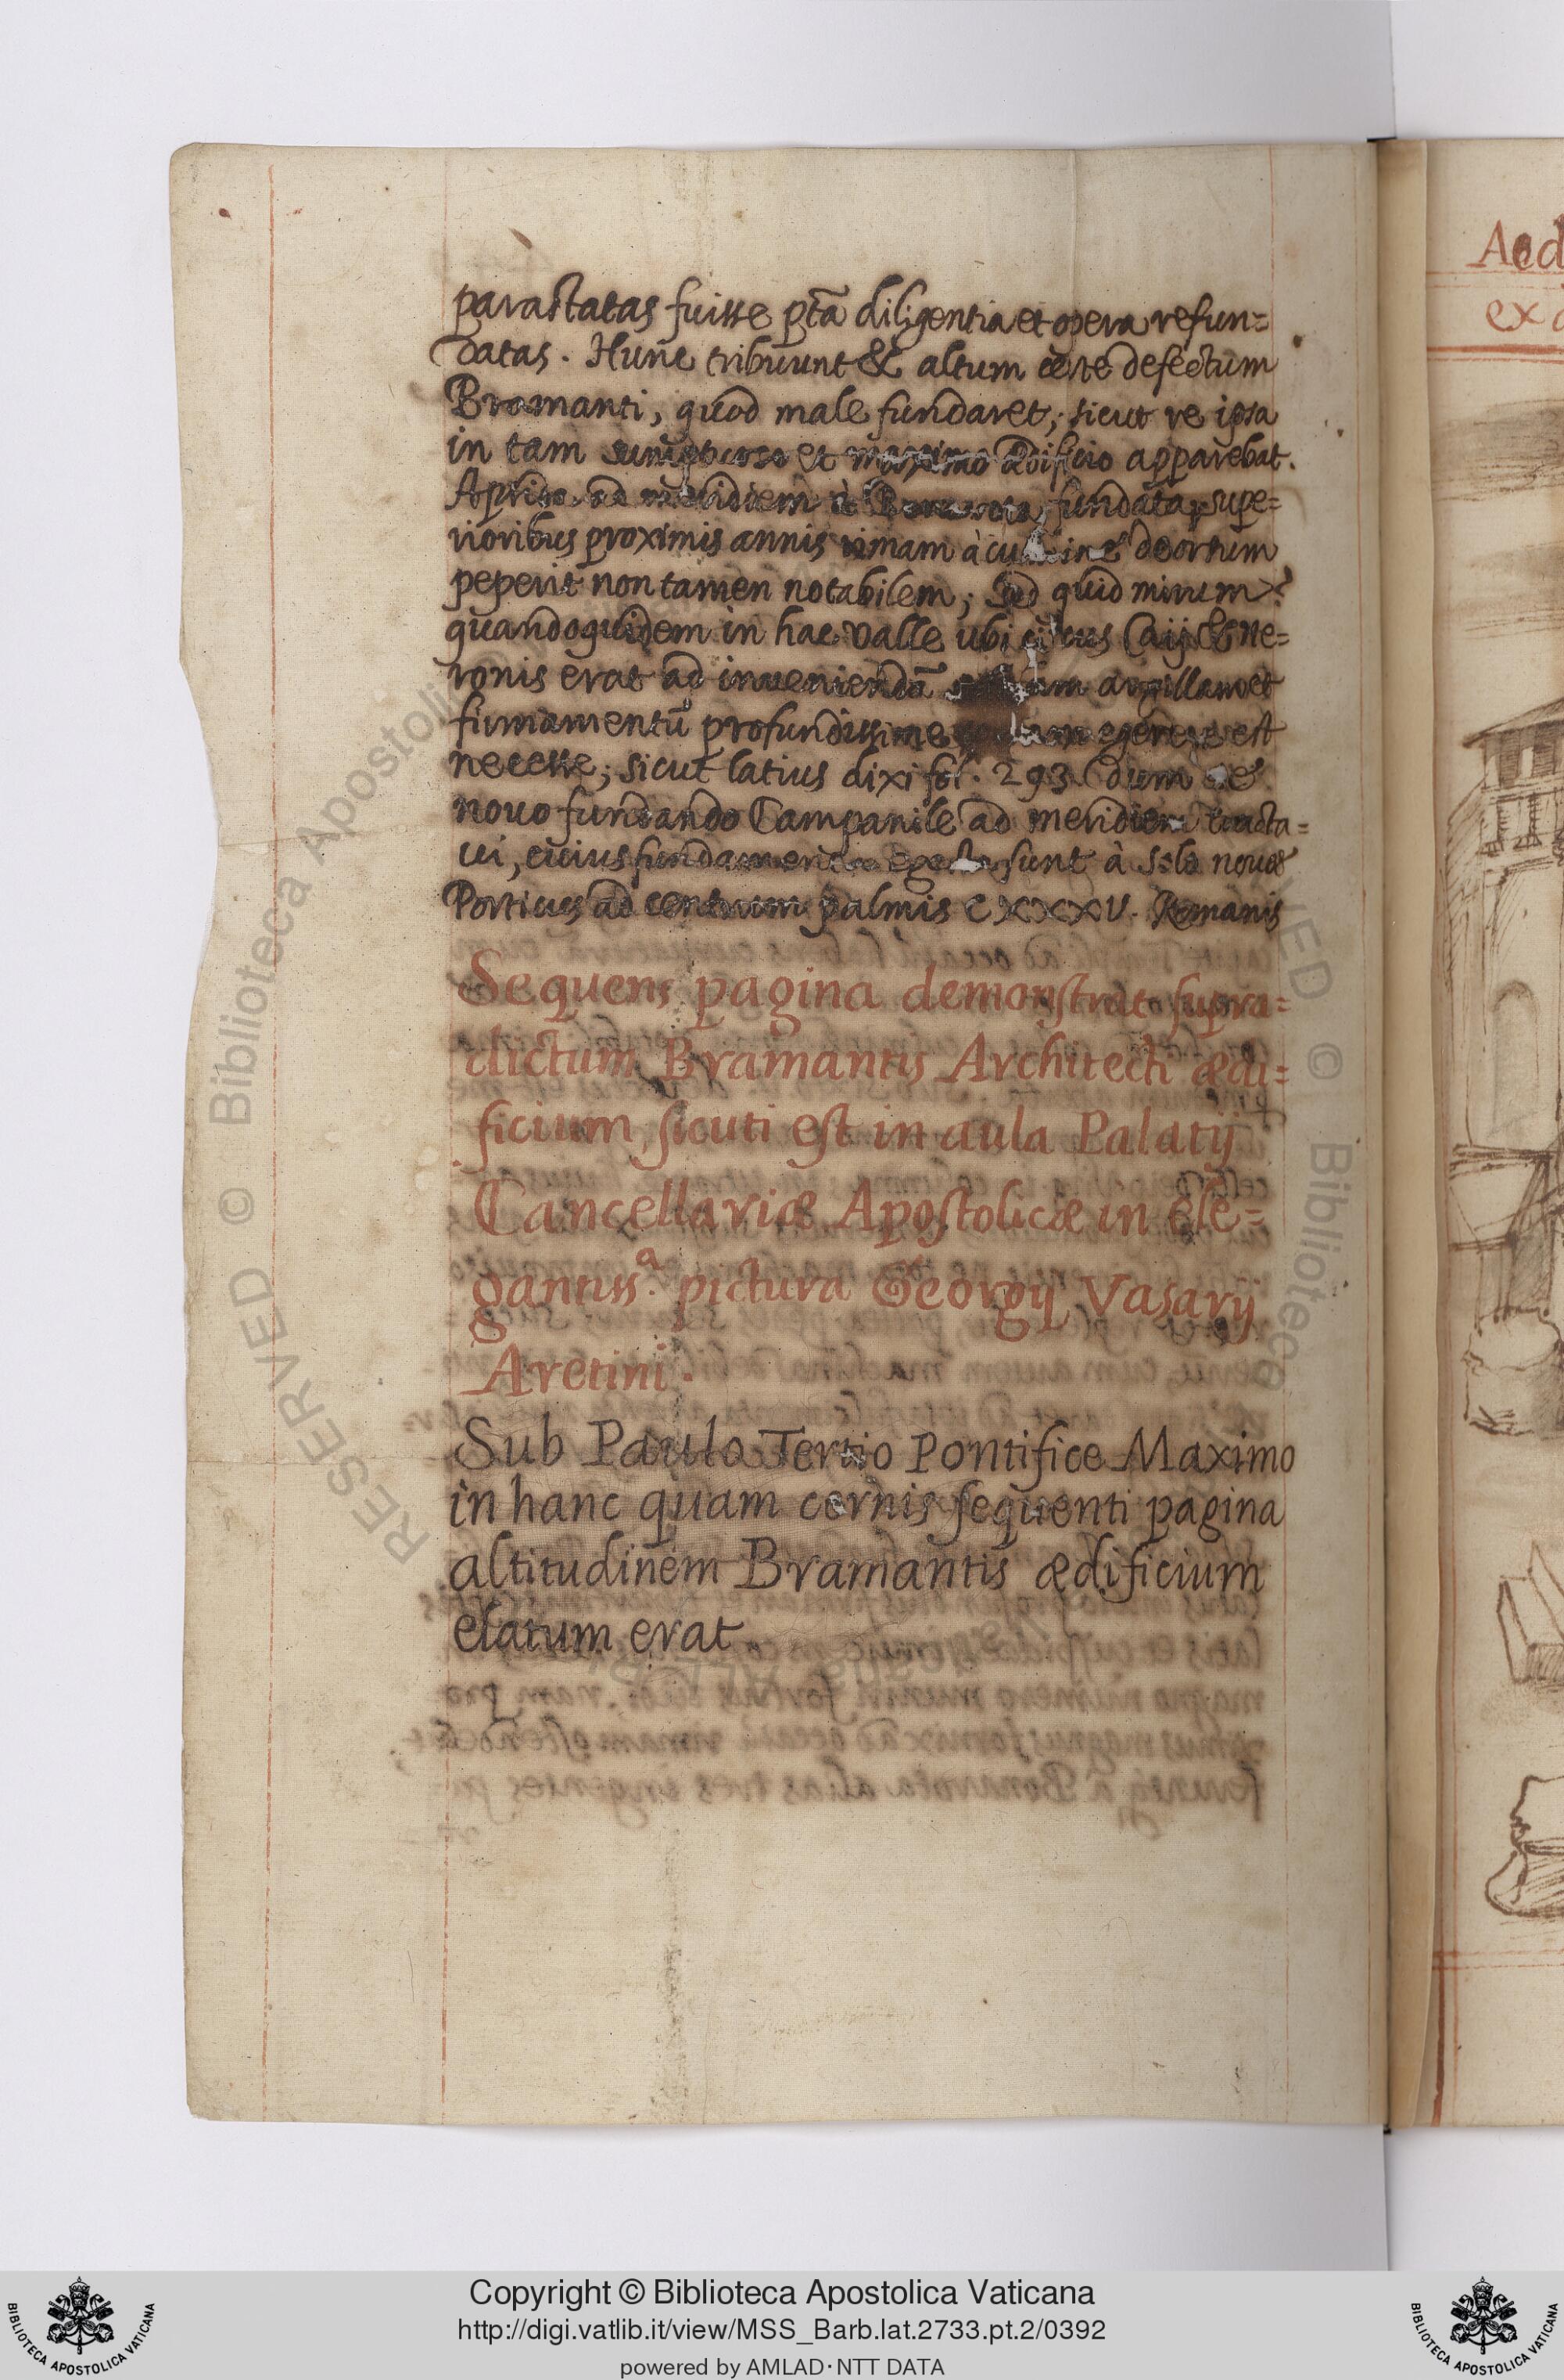 parastatas fuisse pt̄a diligentia et opera refun=
datas. Hunc tribuunt & altum certe defectum
Bramanti, quod male fundaret, sicut re ipsa
in tam sumptuoso et maximo ædificio apparebat.
Apsis ad meridiem à Bonarota fundata, supe=
rioribus proximis annis rimam à culmine deorsum
peperit non tamen notabilem; Sed quid mirum?
quandoquidem in hac valle ubi circus Caij & Ne=
ronis erat ad inueniendā argillam et
firmamentū profundissime egerere est
necesse; sicut latius dixi fol. 293. dum de
nouo fundando Campanile ad meridiem tracta=
ui, cuius fundamenta egesta sunt à solo nouæ
Porticus ad centrum palmis CXXXV. Romanis
Sequens pagina demonstrat supra=
dictum Bramantis Architecti ædi=
ficium, sicuti est in aula Palatij
Cancellariæ Apostolicæ in ele=
gantissᵃ. pictura Georgij Vasarij
Aretini.
Sub Paulo Tertio Pontifice Maximo
in hanc quam cernis sequenti pagina
altitudinem Bramantis ædificium
elatum erat
Aed
ex
RESERVED © Biblioteca Apostolica
© Biblioteca
Copyright © Biblioteca Apostolica Vaticana
http://digi.vatlib.it/view/MSS_Barb.lat.2733.pt.2/0392
powered by AMLAD·NTT DATA
BIBLIOTECA APOSTOLICA VATICANA
BIBLIOTECA APOSTOLICA VATICANA